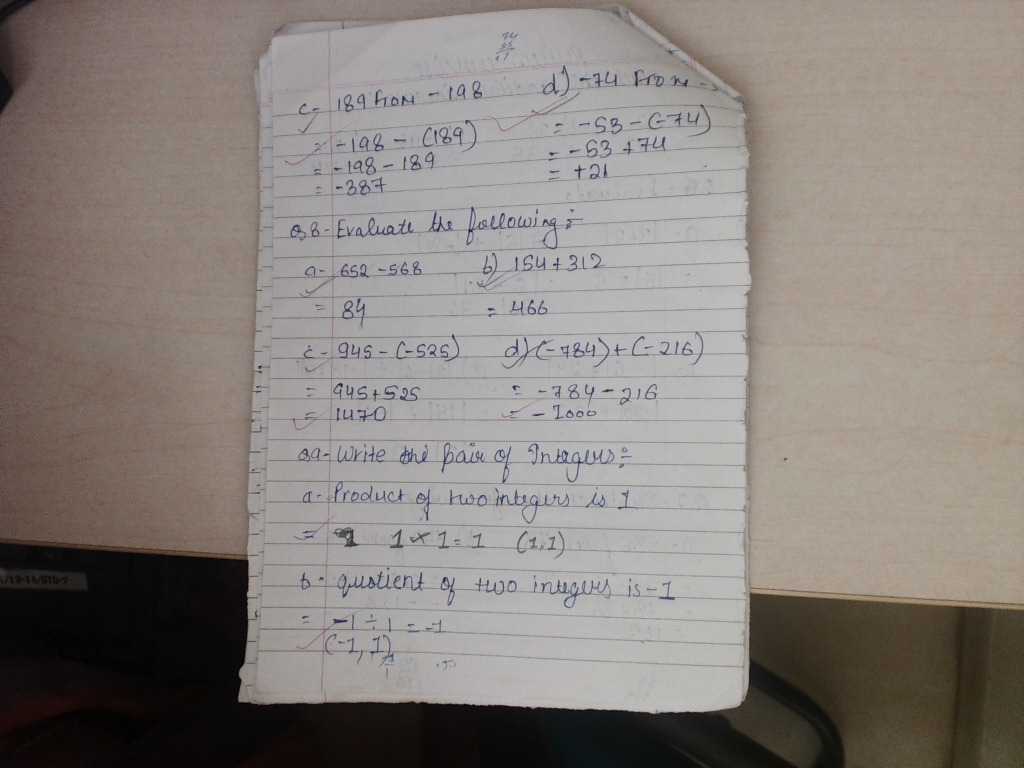 c- 189 from -198
d) -74 from -
= -198 - (189)
= -53 - (-74)
= -198 - 189
= -53 + 74
= -387
= +21
Q8- Evaluate the following :-
a- 652 - 568
b) 154 + 312
= 84
= 466
c- 945 - (-525)
d) (-784) + (-216)
= 945 + 525
= -784 - 216
= 1470
= -1000
Q9- Write the pair of Integers :-
a- Product of two integers is 1
= 1 × 1 = 1 (1,1)
b- quotient of two integers is -1
= -1 ÷ 1 = -1
(-1, 1)
/13-14/STD-7